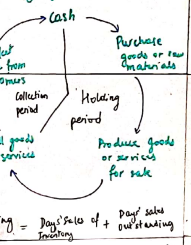 Cash
Purchase
goods or raw
materials
from
omers
Collection
period
Holding
period
goods
services
Produce goods
or services
for sale
ing = Days' Sales of + Days' sales
Inventory outstanding